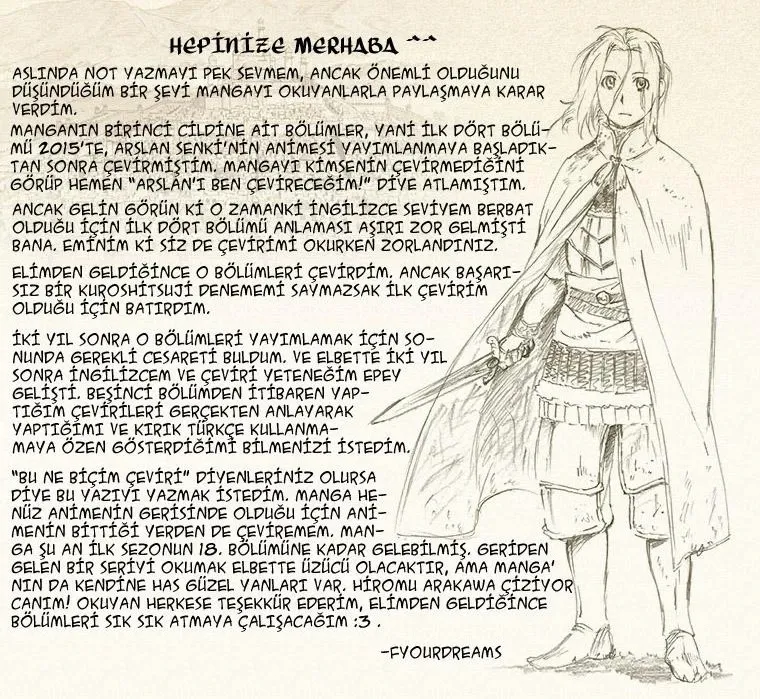 HEPİNİZE MERHABA ^^
ASLINDA NOT YAZMAYI PEK SEVMEM, ANCAK ÖNEMLİ OLDUĞUNU
DÜŞÜNDÜĞÜM BİR ŞEYİ MANGAYI OKUYANLARLA PAYLAŞMAYA KARAR
VERDİM.
MANGANIN BİRİNCİ CİLDİNE AİT BÖLÜMLER, YANİ İLK DÖRT BÖLÜ-
MÜ 2015'TE, ARSLAN SENKİ'NİN ANİMESİ YAYIMLANMAYA BAŞLADIK-
TAN SONRA ÇEVİRMİŞTİM. MANGAYI KİMSENİN ÇEVİRMEDİĞİNİ
GÖRÜP HEMEN "ARSLAN'I BEN ÇEVİRECEĞİM!" DİYE ATLAMIŞTIM.
ANCAK GELİN GÖRÜN Kİ O ZAMANKİ İNGİLİZCE SEVİYEM BERBAT
OLDUĞU İÇİN İLK DÖRT BÖLÜMÜ ANLAMASI AŞIRI ZOR GELMİŞTİ
BANA. EMİNİM Kİ SİZ DE ÇEVİRİMİ OKURKEN ZORLANDINIZ.
ELİMDEN GELDİĞİNCE O BÖLÜMLERİ ÇEVİRDİM. ANCAK BAŞARI-
SIZ BİR KUROSHİTSUJİ DENEMEMİ SAYMAZSAK İLK ÇEVİRİM
OLDUĞU İÇİN BATIRDIM.
İKİ YIL SONRA O BÖLÜMLERİ YAYIMLAMAK İÇİN SO-
NUNDA GEREKLİ CESARETİ BULDUM. VE ELBETTE İKİ YIL
SONRA İNGİLİZCEM VE ÇEVİRİ YETENEĞİM EPEY
GELİŞTİ. BEŞİNCİ BÖLÜMDEN İTİBAREN YAP-
TIĞIM ÇEVİRİLERİ GERÇEKTEN ANLAYARAK
YAPTIĞIMI VE KIRIK TÜRKÇE KULLANMA-
MAYA ÖZEN GÖSTERDİĞİMİ BİLMENİZİ İSTEDİM.
"BU NE BİÇİM ÇEVİRİ" DİYENLERİNİZ OLURSA
DİYE BU YAZIYI YAZMAK İSTEDİM. MANGA HE-
NÜZ ANİMENİN GERİSİNDE OLDUĞU İÇİN ANİ-
MENİN BİTTİĞİ YERDEN DE ÇEVİREMEM. MAN-
GA ŞU AN İLK SEZONUN 18. BÖLÜMÜNE KADAR GELEBİLMİŞ. GERİDEN
GELEN BİR SERİYİ OKUMAK ELBETTE ÜZÜCÜ OLACAKTIR, AMA MANGA'
NIN DA KENDİNE HAS GÜZEL YANLARI VAR. HİROMU ARAKAWA ÇİZİYOR
CANIM! OKUYAN HERKESE TEŞEKKÜR EDERİM, ELİMDEN GELDİĞİNCE
BÖLÜMLERİ SIK SIK ATMAYA ÇALIŞACAĞIM :3 .
-FYOURDREAMS